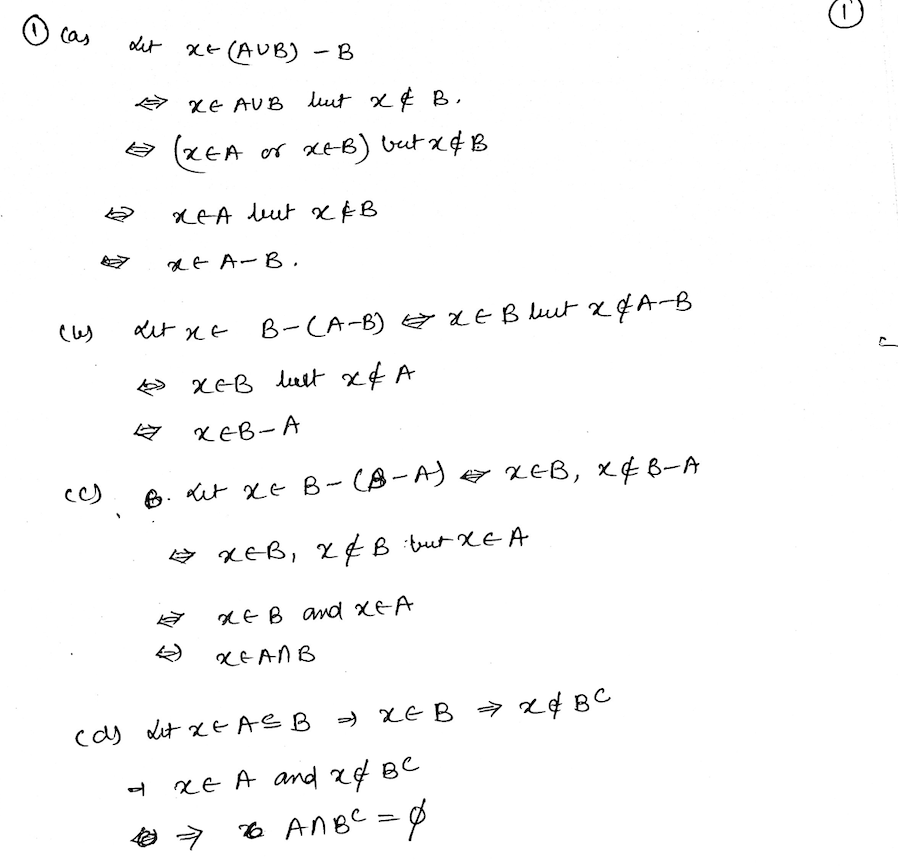 ①
① (a) Let x ∈ (A∪B) – B
⇔ x ∈ A∪B but x ∉ B.
⇔ (x ∈ A or x ∈ B) but x ∉ B
⇔ x ∈ A but x ∉ B
⇔ x ∈ A – B.
(b) Let x ∈ B – (A–B) ⇔ x ∈ B but x ∉ A–B
⇔ x ∈ B but x ∉ A
⇔ x ∈ B – A
(c) Let x ∈ B – (B–A) ⇔ x ∈ B, x ∉ B–A
⇔ x ∈ B, x ∉ B but x ∈ A
⇔ x ∈ B and x ∈ A
⇔ x ∈ A∩B
(d) Let x ∈ A ⊆ B ⇒ x ∈ B ⇒ x ∉ Bᶜ
⇒ x ∈ A and x ∉ Bᶜ
⇒ A∩Bᶜ = ϕ